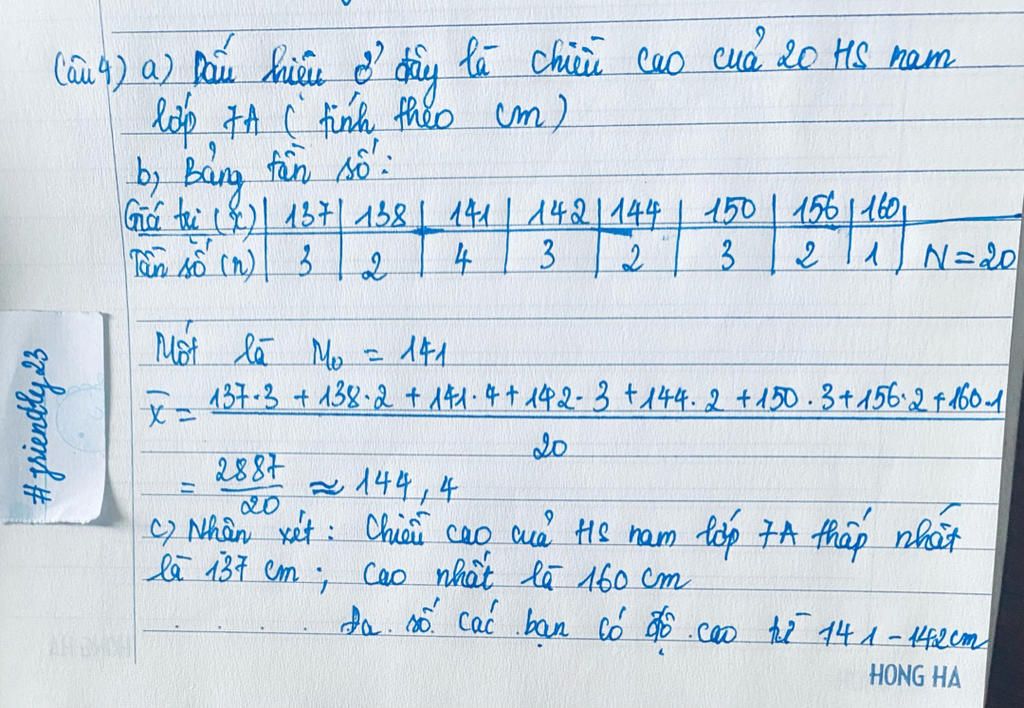 Câu 4) a) Dấu hiệu ở đây là chiều cao của 20 HS nam
lớp 7A ( tính theo cm )
b) Bảng tần số:
Giá trị (x) | 137 | 138 | 141 | 142 | 144 | 150 | 156 | 160
Tần số (n) | 3 | 2 | 4 | 3 | 2 | 3 | 2 | 1 | N = 20
Mốt là M₀ = 141
x̄ = 137·3 + 138·2 + 141·4 + 142·3 + 144·2 + 150·3 + 156·2 + 160·1
20
= 2887/20 ≈ 144,4
c) Nhận xét: Chiều cao của HS nam lớp 7A thấp nhất
là 137 cm ; cao nhất là 160 cm
Đa số các bạn có độ cao từ 141 - 142cm
HONG HA
#friendly23